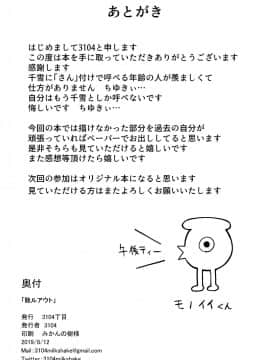 あとがき
はじめまして3104と申します
この度は本を手に取っていただきありがとうございます
感謝します
千雪に「さん」付けで呼べる年齢の人が羨ましくて
仕方がありません　ちゆきぃ…
自分はもう千雪としか呼べないです
悔しいです　ちゆきぃ…
今回の本では描けなかった部分を過去の自分が
頑張っていればペーパーでお出ししてると思います
是非そちらも見ていただけると嬉しいです
また感想等頂けたら嬉しいです
次回の参加はオリジナル本になると思います
見ていただける方はまたよろしくお願いいたします
午後ティー
モノイイくん
奥付
発行　3104丁目
発行者　3104
印刷　みかんの樹様
2019/5/12
Mail:3104milkshake@gmail.com
Twitter:3104milkshake